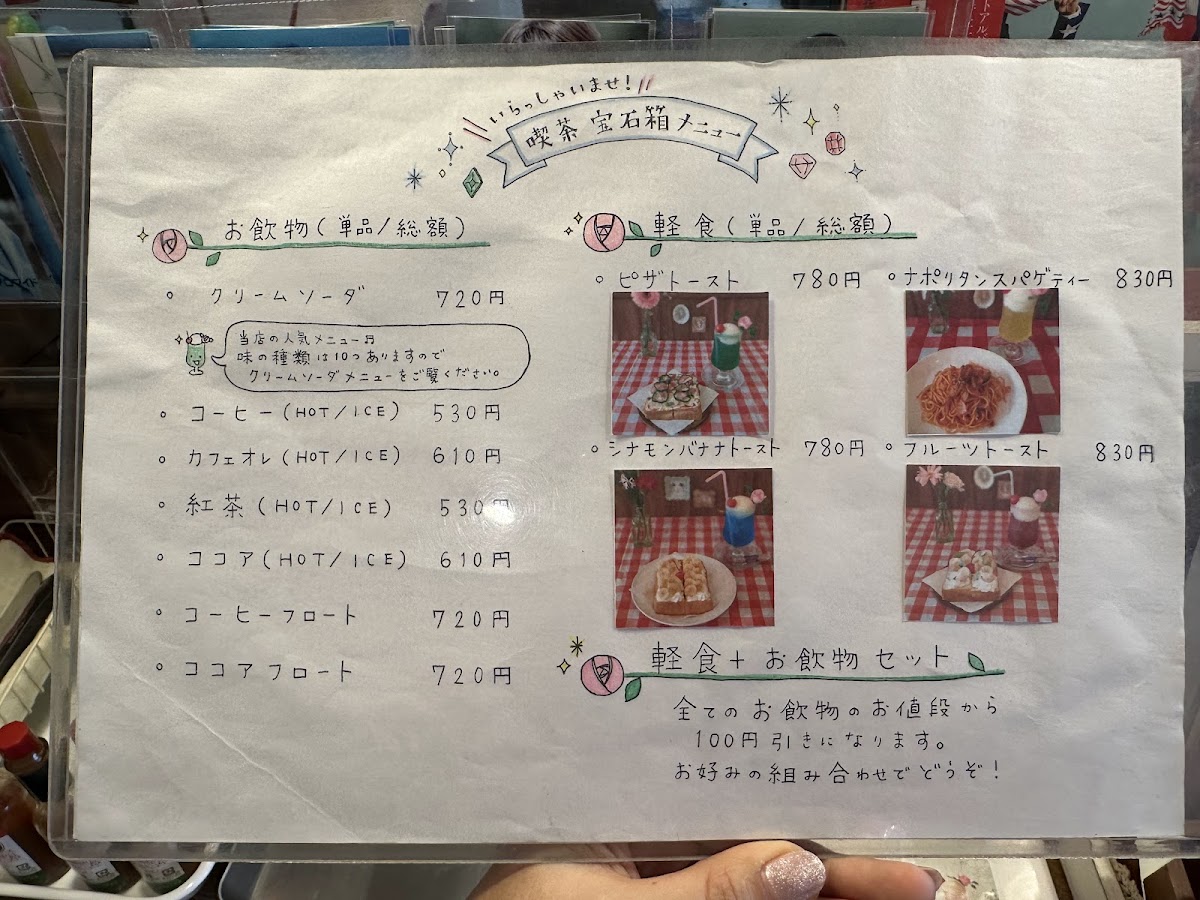 いらっしゃいませ!
喫茶 宝石箱 メニュー
お飲物(単品/総額)
。クリームソーダ 720円
当店の人気メニュー♬
味の種類は10つありますので
クリームソーダメニューをご覧ください。
。コーヒー(HOT/ICE) 530円
。カフェオレ(HOT/ICE) 610円
。紅茶(HOT/ICE) 530円
。ココア(HOT/ICE) 610円
。コーヒーフロート 720円
。ココアフロート 720円
軽食(単品/総額)
。ピザトースト 780円 。ナポリタンスパゲティー 830円
。シナモンバナナトースト 780円 。フルーツトースト 830円
軽食+お飲物セット
全てのお飲物のお値段から
100円引きになります。
お好みの組み合わせでどうぞ!